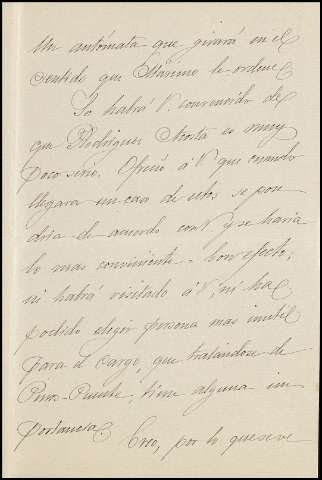 un autómata que girará en el
sentido que Máximo le ordene.
Se habrá V. convencido de
que Rodriguez Acosta es muy
poco serio. Ofreció á V. que cuando
llegara un caso de estos se pon
dria de acuerdo con V. y se haria
lo mas conveniente. Con efecto;
ni habrá visitado á V., ni ha
podido elegir persona mas inutil
para el cargo, que tratándose de
Pino-Puente, tiene alguna im
portancia. Creo, por lo que se ve